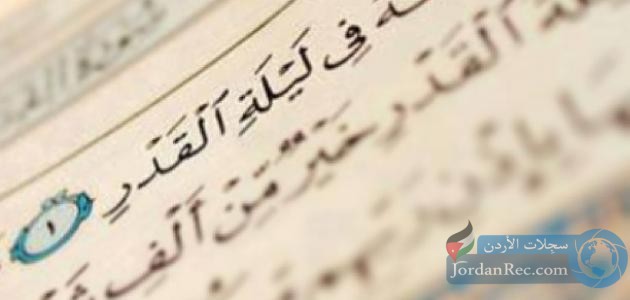 فِي لَيْلَةِ ٱلْقَدْرِ ١
ٱلْقَدْرِ خَيْرٌ مِّنْ أَلْفِ
بِإِذْنِ
سجلات الأردن
JordanRec.com